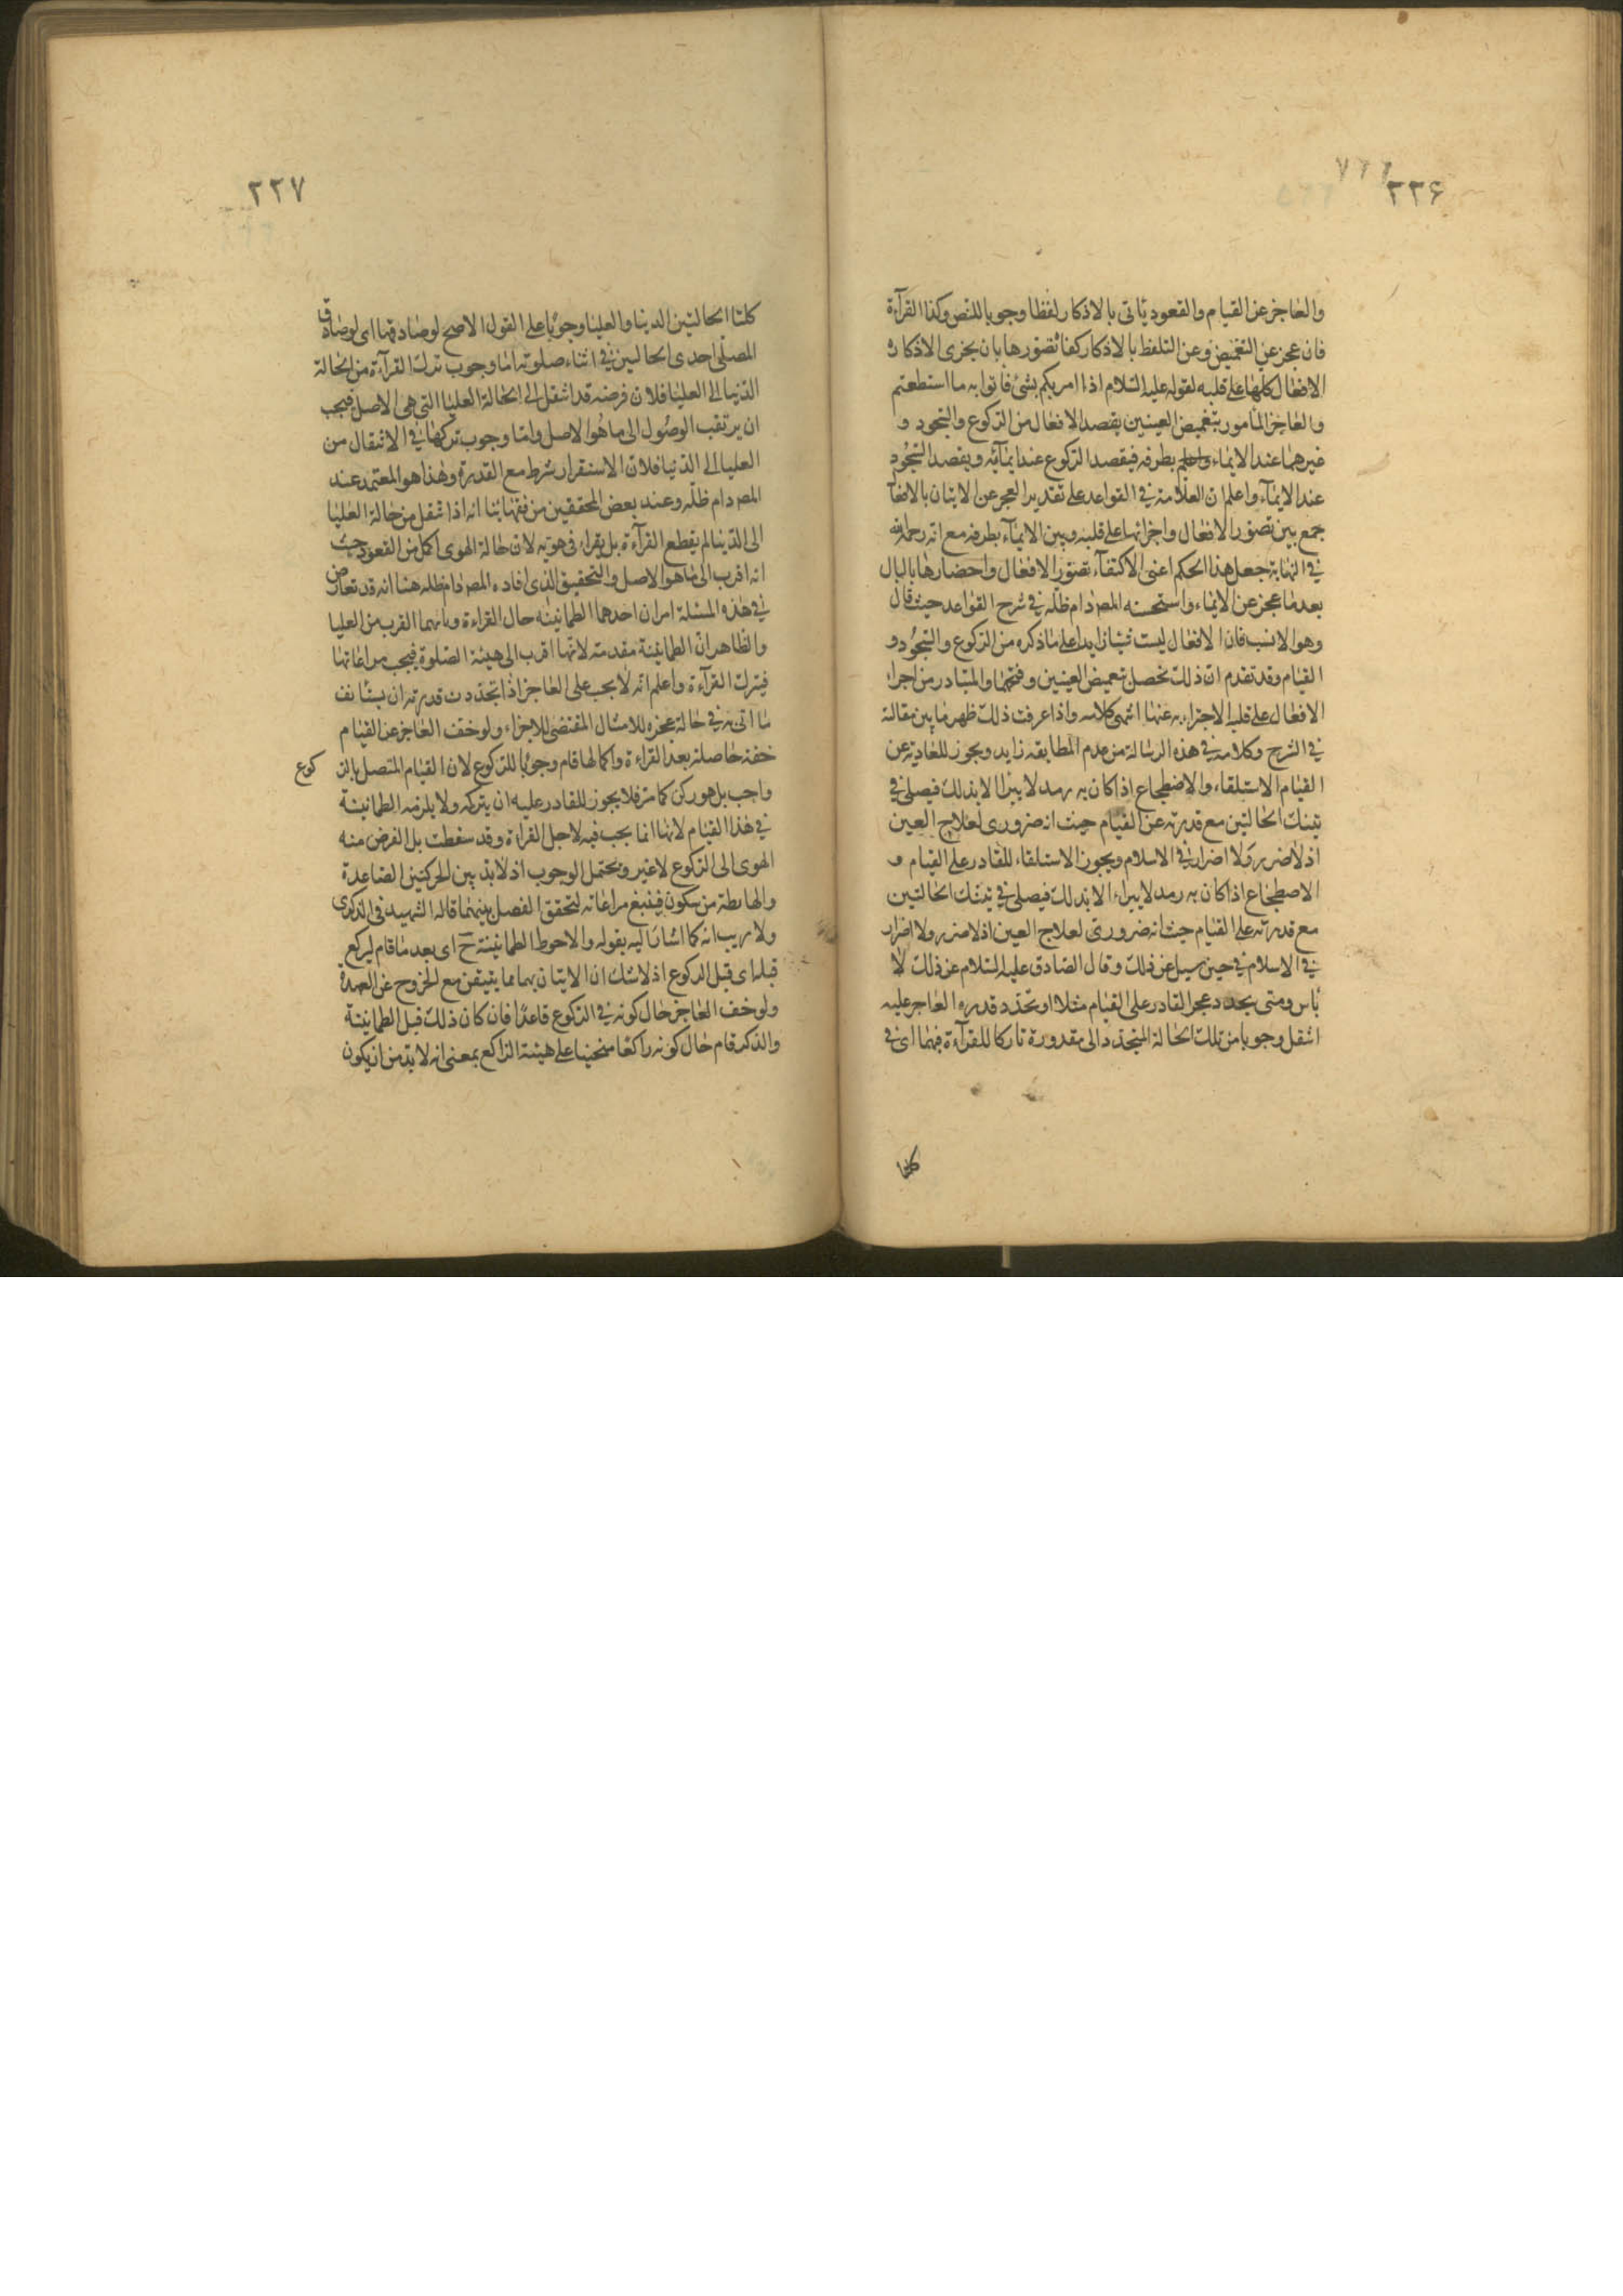 ٢٢۶
والعاجز عن القيام والقعود ياتى بالاذكار لفظا وجوبا للنص وكذا القرآءة
فان عجز عن التغميض وعن التلفظ بالاذكار كفا تصورها بان يجرى الاذكار و
الافعال كلها على قلبه لقوله عليه السلام اذا امريكم بشئ فاتوا به ما استطعتم
والعاجز المامور بتغميض العينين يقصد الافعال من الركوع والسجود و
غيرهما عند الايماء بطرفه فيقصد الركوع عند ايمائه ويقصد السجود
عند الايمآء واعلم ان العلامة فى القواعد على تقدير العجز عن الاتيان بالافعا
جمع بين تصور الافعال واجرائها على قلبه وبين الايمآء بطرفه مع انه رحمه الله
فى النهاية جعل هذا الحكم اعنى الاكتفآء بتصور الافعال واحضارها بالبال
بعد ما عجز عن الايماء واستحسنه المص دام ظله فى شرح القواعد حيث قال
وهو الانسب فان الافعال ليست شيئا زايدا على ما ذكره من الركوع والسجود و
القيام وقد تقدم ان ذلك يحصل بتغميض العينين وفتحهما والمتبادر من اجراء
الافعال على قلبه الاجتزاء به عنها انتهى كلامه واذا عرفت ذلك ظهر ما بين مقالته
فى الشرح وكلامه فى هذه الرسالة من عدم المطابقه زايد ويجوز للعادية عن
القيام الاستلقاء والاضطجاع اذا كان به رمد لا يبرأ الا بذلك فيصلى فى
تينك الحالتين مع قدرته عن القيام حيث انه ضرورى لعلاج العين
اذ لا ضرر ولا اضرار فى الاسلام ويجوز الاستلقاء للقادر على القيام و
الاضطجاع اذا كان به رمد لا يبراء الا بذلك فيصلى فى تينك الحالتين
مع قدرته على القيام حيث انه ضرورى لعلاج العين اذ لا ضرر ولا اضرار
فى الاسلام فى حين سيل عن ذلك وقال الصادق عليه السلام عن ذلك لا
باس ومتى يجدد عجز القادر على القيام مثلا او تجدد قدره العاجز عليه
انتقل وجوبا من تلك الحالة المتجدد الى مقدورة تاركا للقرآءة فيهما اى فى
كلتا
٢٢٧
كلتا الحالتين الدنيا والعليا وجوبا على القول الاصح لو صادفها اى لو صادف
المصلى احدى الحالتين فى اثناء صلوته اما وجوب ترك القرآءة من الحالة
الدنيا الى العليا فلان فرضه قد انتقل الى الحالة العليا التى هى الاصل فيجب
ان يرتقب الوصول الى ما هو الاصل واما وجوب تركها فى الانتقال من
العليا الى الدنيا فلان الاستقرار شرط مع القدرة وهذا هو المعتمد عند
المص دام ظله وعند بعض المحققين من فقهائنا انه اذا انتقل من حالة العليا
الى الدنيا لم يقطع القرآءة بل يقراء فى هويه لان حالة الهوى اكمل من القعود حيث
انه اقرب الى ما هو الاصل والتحقيق الذى افاده المص دام ظله هنا انه قد تعارض
فى هذه المسئلة امران احدهما الطمانينه حال القراءة وثانيهما القرب من العليا
والظاهر ان الطمانينة مقدمة لانها اقرب الى هيئة الصلوة فيجب مراعاتها
فيترك القرآءة واعلم انه لا يجب على العاجز اذا تجددت قدرته ان يستانف
ما اتى به فى حالة عجزه للامتثال المقتضى للاجزاء ولو خفف العاجز عن القيام
خفة حاصلة بعد القراءة واكمالها قام وجوبا للركوع لان القيام المتصل بالر كوع
واجب بل هو ركن كما مر فلا يجوز للقادر عليه ان يتركه ولا يلزمه الطمانينة
فى هذا القيام لانها انما يجب فيه لاجل القراءة وقد سقطت بل الفرض منه
الهوى الى الركوع لا غير ويحتمل الوجوب اذ لا بد بين الحركتين الصاعدة
والهابطة من سكون فينبغ مراعاته لتحقق الفصل بينهما قاله الشهيد فى الذكرى
ولا ريب انه كما اشار اليه بقوله والاحوط الطمانينة ح اى بعد ما قام ليركع
قبله اى قبل الركوع اذ لا شك ان الاتيان بهما مما يتيقن مع الخروج عن العهدة
ولو خفف العاجز حال كونه فى الركوع قاعدا فان كان ذلك قبل الطمانينة
والذكر قام حال كونه راكعا منحنيا على هيئة الراكع بمعنى انه لا بد من ان يكون